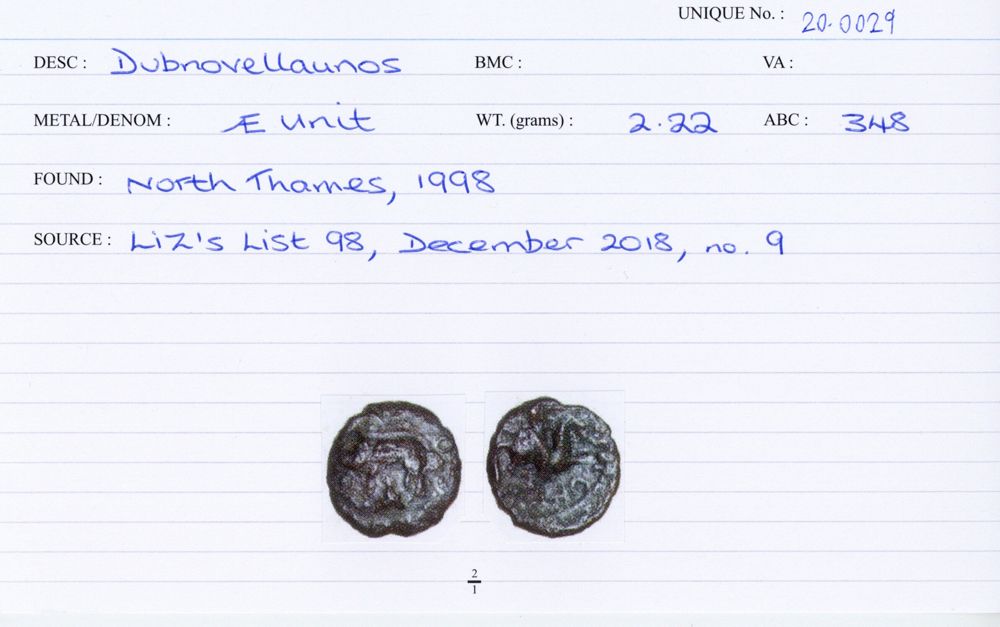 UNIQUE No. : 20.0029
DESC : Dubnovellaunos BMC : VA :
METAL/DENOM : Æ unit WT. (grams) : 2.22 ABC : 348
FOUND : North Thames, 1998
SOURCE : Liz's List 98, December 2018, no. 9
2
1